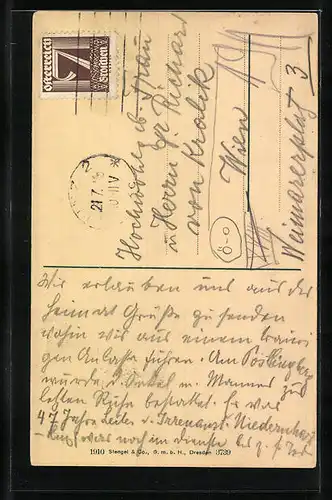 österreich
7
Groschen
2
21.7.
Hochwohlgeb. Frau
u Herrn Dr. Richard
von Kralik
Wien
Weimarerplatz 3
Wir erlauben uns aus der
Heimat Grüße zu senden
wohin wir aus einem trauri
gen Anlasse fuhren. Am Pöstlingberg
wurde d. Onkel m. Mannes zur
letzten Ruhe bestattet. Er war
47 Jahre Leiter d. Irrenanst. Niedernhart
war noch im Dienste bis z.
1910 Stengel & Co., G. m. b. H., Dresden 3739